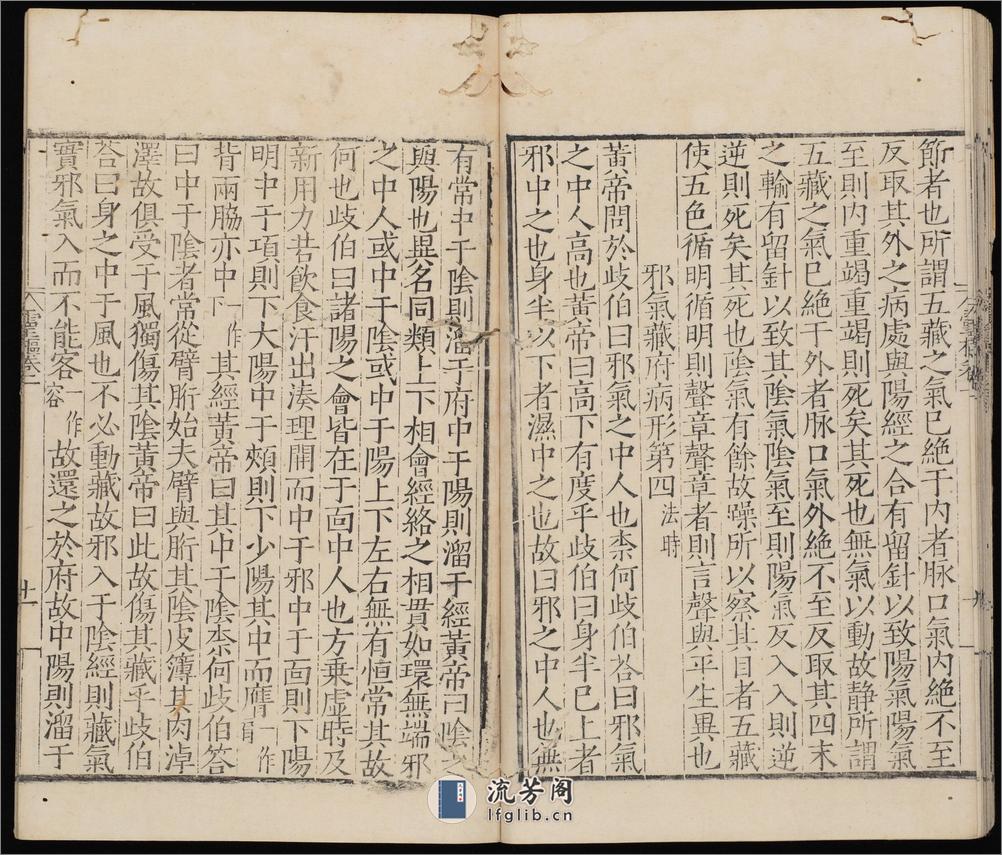 節者也所謂五藏之氣已絶于内者脉口氣内絶不至
反取其外之病處與陽經之合有留針以致陽氣陽氣
至則内重竭重竭則死矣其死也無氣以動故静所謂
五藏之氣已絶于外者脉口氣外絶不至反取其四末
之輸有留針以致其陰氣陰氣至則陽氣反入入則逆
逆則死矣其死也陰氣有餘故躁所以察其目者五藏
使五色循明循明則聲章聲章者則言聲與平生異也
邪氣藏府病形第四 法時
黄帝問於歧伯曰邪氣之中人也柰何歧伯荅曰邪氣
之中人高也黄帝曰高下有度乎歧伯曰身半已上者
邪中之也身半以下者濕中之也故曰邪之中人也無
有常中于陰則溜于府中于陽則溜于經黄帝曰陰之
與陽也異名同類上下相會經絡之相貫如環無端邪
之中人或中于陰或中于陽上下左右無有恒常其故
何也歧伯曰諸陽之會皆在于面中人也方乗虚時及
新用力若飲食汗出湊理開而中于邪中于面則下陽
明中于項則下大陽中于頰則下少陽其中而膺 一作肩
背兩脇亦中 一作下 其經黄帝曰其中于陰柰何歧伯答
曰中于陰者常從臂胻始夫臂與胻其陰皮簿其肉淖
澤故俱受于風獨傷其陰黄帝曰此故傷其藏乎歧伯
荅曰身之中于風也不必動藏故邪入于陰經則藏氣
實邪氣入而不能客 一作容 故還之於府故中陽則溜于
靈樞卷二
十一
流芳阁
lfglib.cn